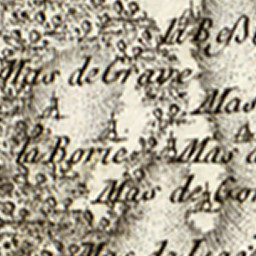 la Boss
Mas de Grave
Mas
la Borie
Mas d
Mas de Gor
Mas de